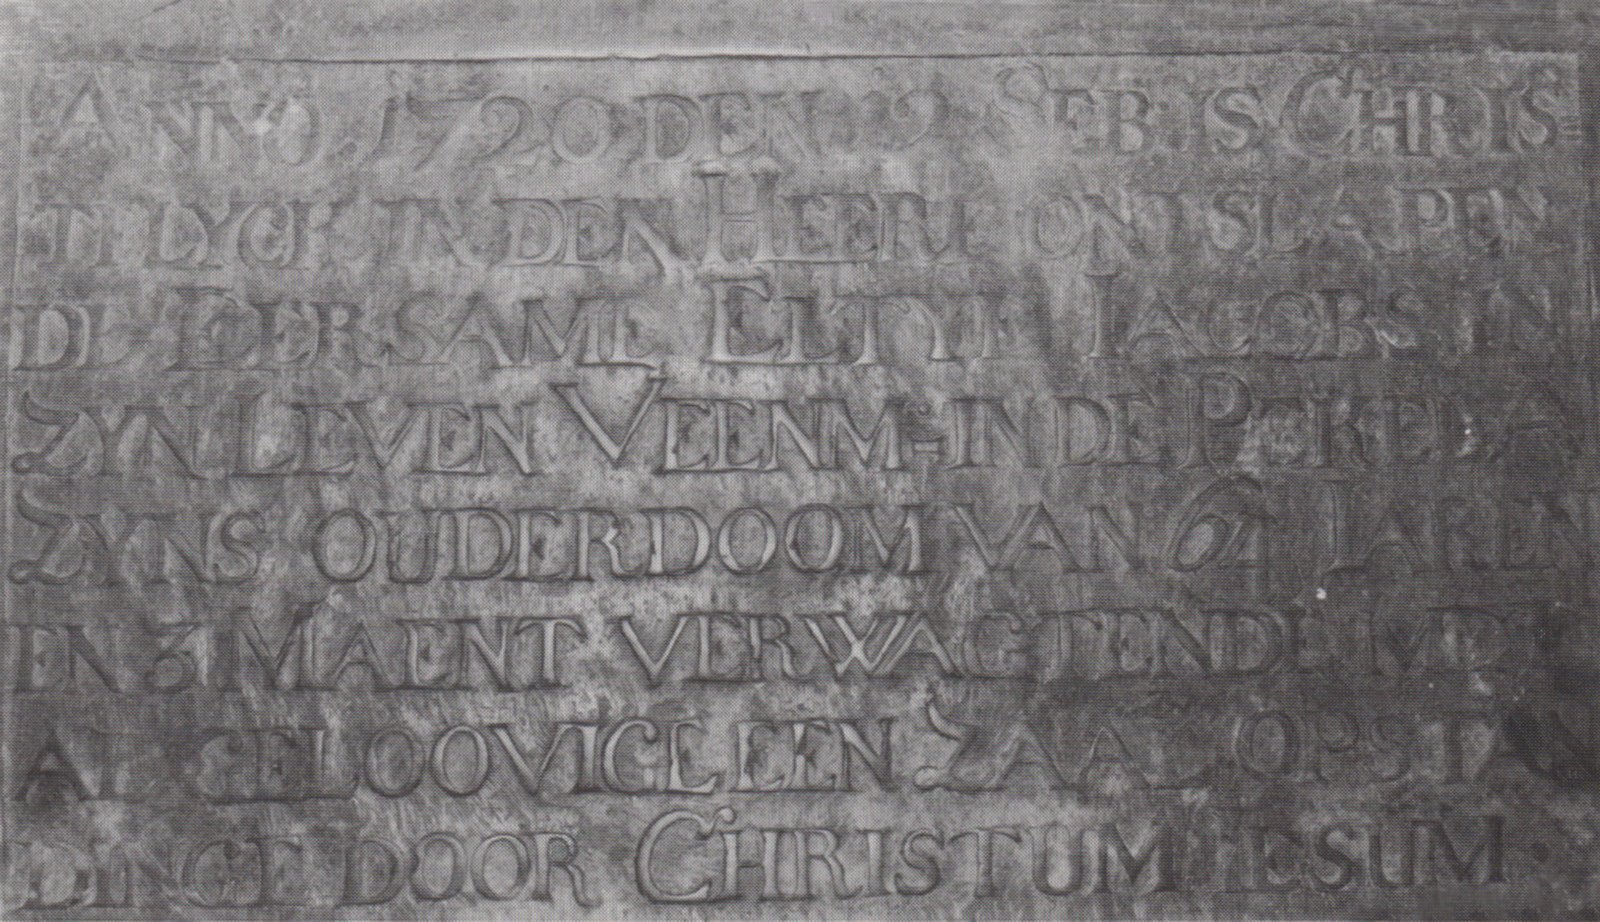 ANNO 1720 DEN 19 FEB: IS CHRIS=
TELYCK IN DEN HEERE ONTSLAPEN
DE EERSAME ELTYE IACOBS IN
ZYN LEVEN VEENM: IN DE PEKEL A
ZYNS OUDERDOOM VAN 64 IAREN
EN 3 MAENT VERWAGTENDE MET
ALLE GELOOVIGE EEN ZAALIGE OPSTAN
DINGE DOOR CHRISTUM IESUM